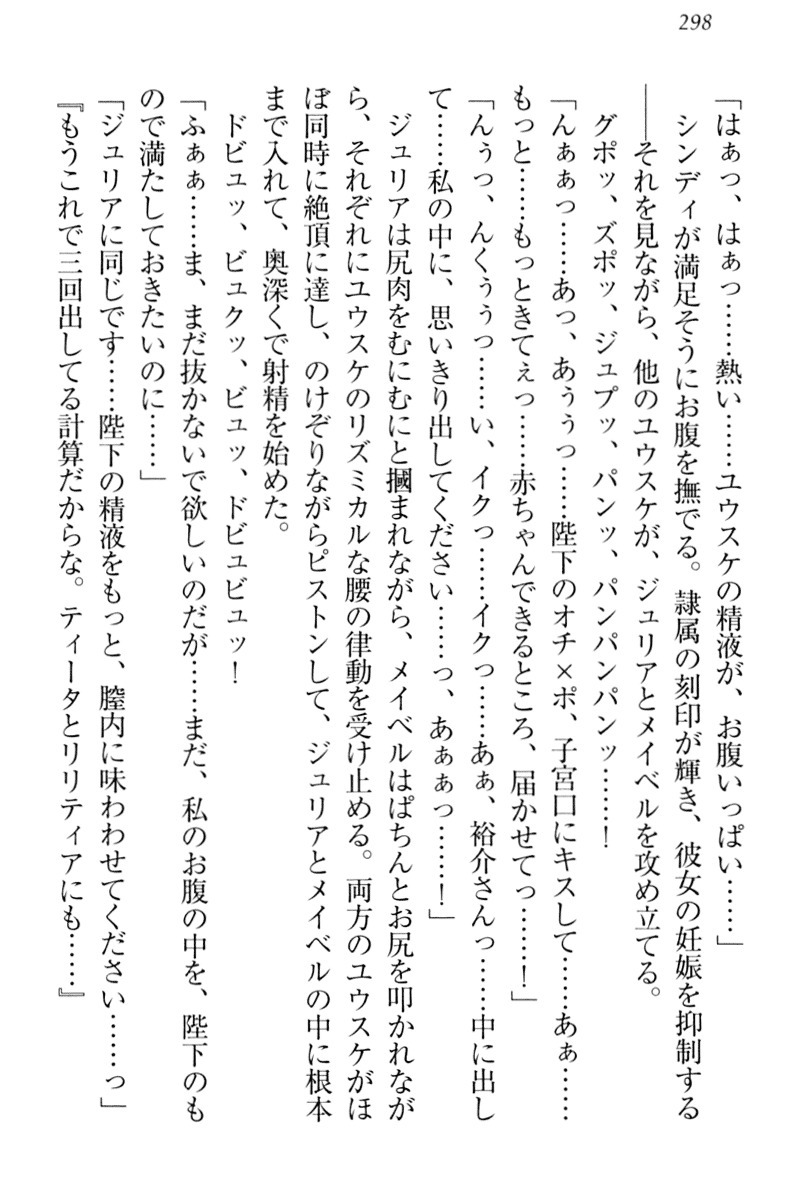 298
「はぁっ、はぁっ……熱い……ユウスケの精液が、お腹いっぱい……」
シンディが満足そうにお腹を撫でる。隷属の刻印が輝き、彼女の妊娠を抑制する
――それを見ながら、他のユウスケが、ジュリアとメイベルを攻め立てる。
グポッ、ズポッ、ジュプッ、パンッ、パンパンパンッ……！
「んぁぁっ……あっ、あぅぅっ……陛下のオチ×ポ、子宮口にキスして……あぁ……
もっと……もっときてぇっ……赤ちゃんできるところ、届かせてっ……！」
「んぅっ、んくぅぅっ……い、イクっ……イクっ……あぁ、裕介さんっ……中に出し
て……私の中に、思いきり出してください……っ、あぁぁっ……！」
ジュリアは尻肉をむにむにと摑まれながら、メイベルはぱちんとお尻を叩かれなが
ら、それぞれにユウスケのリズミカルな腰の律動を受け止める。両方のユウスケがほ
ぼ同時に絶頂に達し、のけぞりながらピストンして、ジュリアとメイベルの中に根本
まで入れて、奥深くで射精を始めた。
ドビュッ、ビュクッ、ビュッ、ドビュビュッ！
「ふぁぁ……ま、まだ抜かないで欲しいのだが……まだ、私のお腹の中を、陛下のも
ので満たしておきたいのに……」
「ジュリアに同じです……陛下の精液をもっと、膣内に味わわせてください……っ」
『もうこれで三回出してる計算だからな。ティータとリリティアにも……』